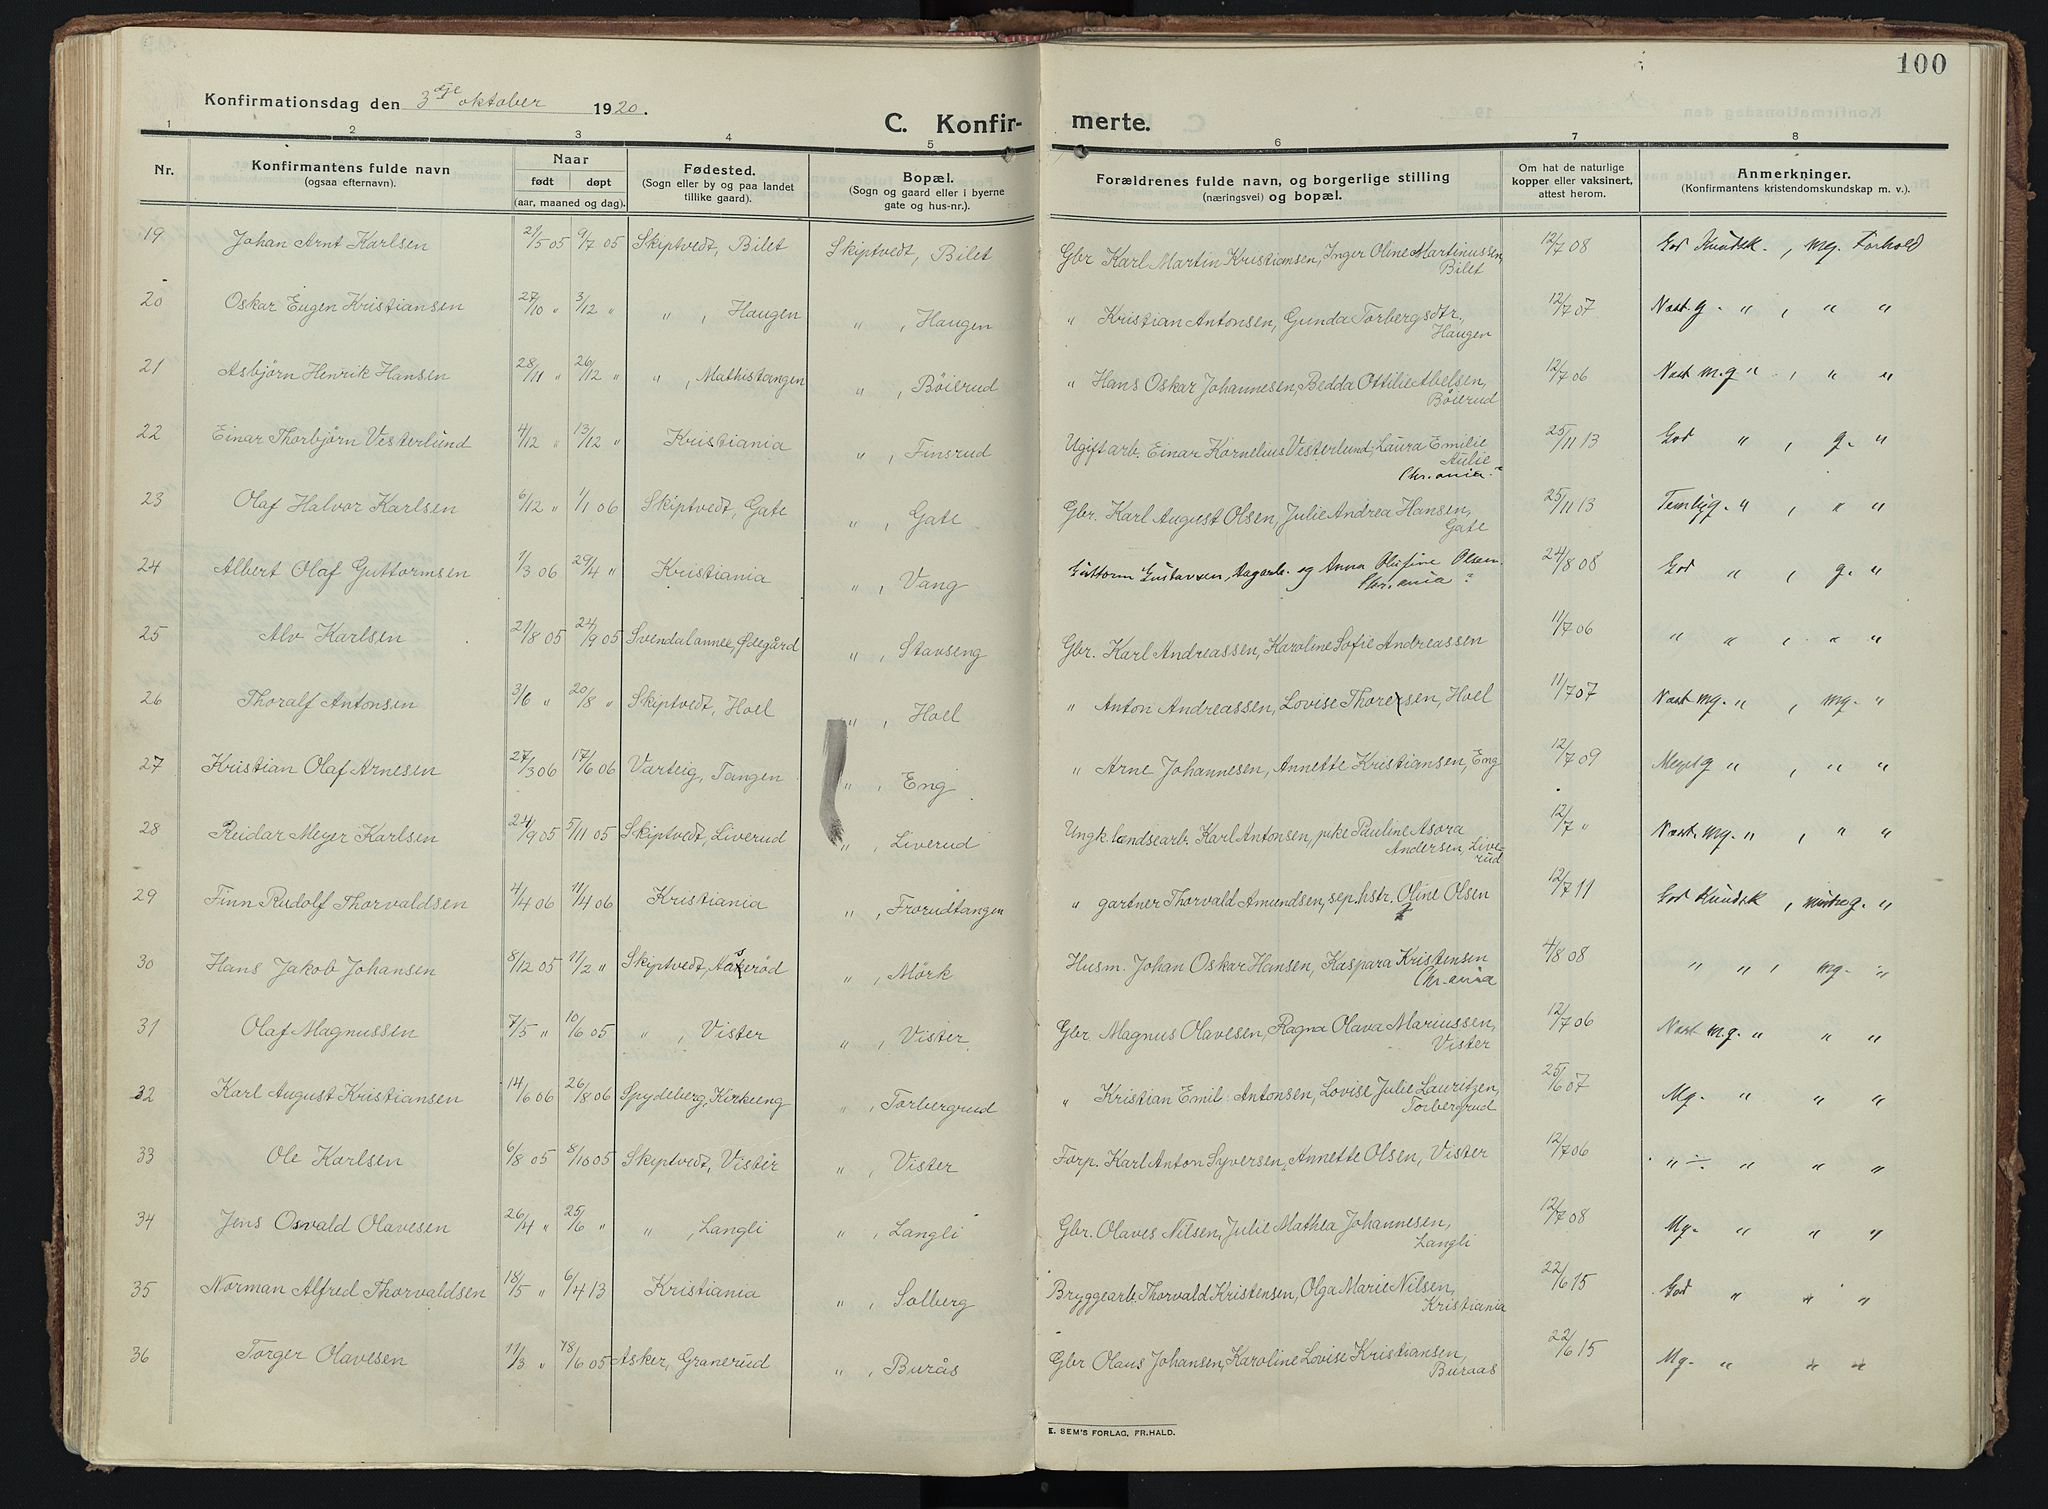 100
Konfirmationsdag den 3dje oktober 1920.
C. Konfir- merte.
1 2 3 4 5 6 7 8
Nr.
Konfirmantens fulde navn
(ogsaa efternavn).
Naar
født døpt
(aar, maaned og dag).
Fødested.
(Sogn eller by og paa landet
tillike gaard).
Bopæl.
(Sogn og gaard eller i byerne
gate og hus-nr.).
Forældrenes fulde navn, og borgerlige stilling
(næringsvei) og bopæl.
Om hat de naturlige
kopper eller vaksinert,
attest herom.
Anmerkninger.
(Konfirmantens kristendomskundskap m. v.).
19 Johan Arnt Karlsen 2/5 05 9/7 05 Skiptvedt, Bilet Skiptvedt, Bilet Gbr Karl Martin Kristiansen, Inger Oline Martinussen, 12/7 08 God Kundsk. , mg. Forhold
Bilet
20 Oskar Eugen Kristiansen 27/10 " 3/12 " " , Haugen " , Haugen " Kristian Antonsen, Gunda Torbergsdtr, 12/7 07 Næst. g. " , " "
Haugen
21 Asbjørn Henrik Hansen 28/11 " 26/12 " " , Mathistangen " , Böierud " Hans Oskar Johannesen, Bedda Ottilie Abelsen, 12/7 06 Næst m.g " , " "
Böierud
22 Einar Thorbjørn Vesterlund 4/12 " 13/12 " Kristiania " , Finsrud Ugift arb. Einar Kornelius Vesterlund, Laura Emilie 25/11 13 God " , g. "
Aulie
Chr.ania.
23 Olaf Halvor Karlsen 6/12 " 1/1 06 Skiptvedt, Gate " , Gate Gbr. Karl August Olsen, Julie Andrea Hansen, 25/11 13 Temlig. " , " "
Gate
24 Albert Olaf Guttormsen 1/3 06 29/4 " Kristiania " , Vang Guttorm Gustavsen, Dagarb. og Anna Olufine Olsen. 24/8 08 God " , g. "
Chr.ania?
25 Alv Karlsen 21/8 05 24/9 05 Svendalannee, Ødegård " , Stavseng Gbr. Karl Andreassen, Karoline Sofie Andreassen 11/7 06 " " , " "
26 Thoralf Antonsen 3/6 " 20/8 " Skiptvedt, Hoel " , Hoel " Anton Andreassen, Lovise Thoresen, Hoel 11/7 07 Næst mg. " , mg. "
27 Kristian Olaf Arnesen 27/3 06 17/6 06 Varteig, Tangen " , Eng " Arne Johannesen, Annette Kristiansen, Eng 12/7 09 Meget g " , " "
28 Reidar Meyer Karlsen 24/9 05 5/11 05 Skiptvedt, Liverud " , Liverud Ungk. lændsearb. Karl Antonsen, pike Pauline Asora 12/7 " Næst. mg. " , " "
Andersen, Live-
rud
29 Finn Rudolf Thorvaldsen 4/4 06 11/4 06 Kristiania " , Frorudtangen " gartner Thorvald Amundsen, sep. hstr. Oline Olsen 12/7 11 God Kundsk , g. "
30 Hans Jakob Johansen 8/12 05 11/2 " Skiptvedt, " , Mörk Husm. Johan Oskar Hansen, Kaspara Kristensen 4/8 08 " " , mg. "
Chr.ania
31 Olaf Magnussen 7/5 " 10/6 05 " , Vister " , Vister Gbr. Magnus Olavesen, Ragna Olava Mariussen, 12/7 06 Næst m.g. " " "
Vister
32 Karl August Kristiansen 14/6 06 26/8 06 Spydeberg, Kirkeeng " , Torbergrud " Kristian Emil Antonsen, Lovise Julie Lauritzen, 25/6 07 Mg. " " "
Torbergrud
33 Ole Karlsen 6/8 05 8/10 05 Skiptvedt, Vister " , Vister Forp. Karl Anton Syversen, Annette Olsen, Vister 12/7 06 " ÷ " " "
34 Jens Osvald Olavesen 26/4 " 25/6 " " , Langli " , Langli Gbr. Olaves Nilsen, Julie Mathea Johannesen, 12/7 08 Mg. " " "
Langli
35 Norman Alfred Thorvaldsen 18/5 " 6/4 13 Kristiania " , Solberg Bryggearb. Thorvald Kristensen, Olga Marie Nilsen, 22/6 15 God " " "
Kristiania
36 Torger Olavesen 11/3 " 18/6 05 Asker, Granerud " , Burås Gbr Olaus Johansen, Karoline Lovise Kristiansen, 22/6 15 Mg. " " "
Buraas
E. SEM'S FORLAG, FR.HALD.